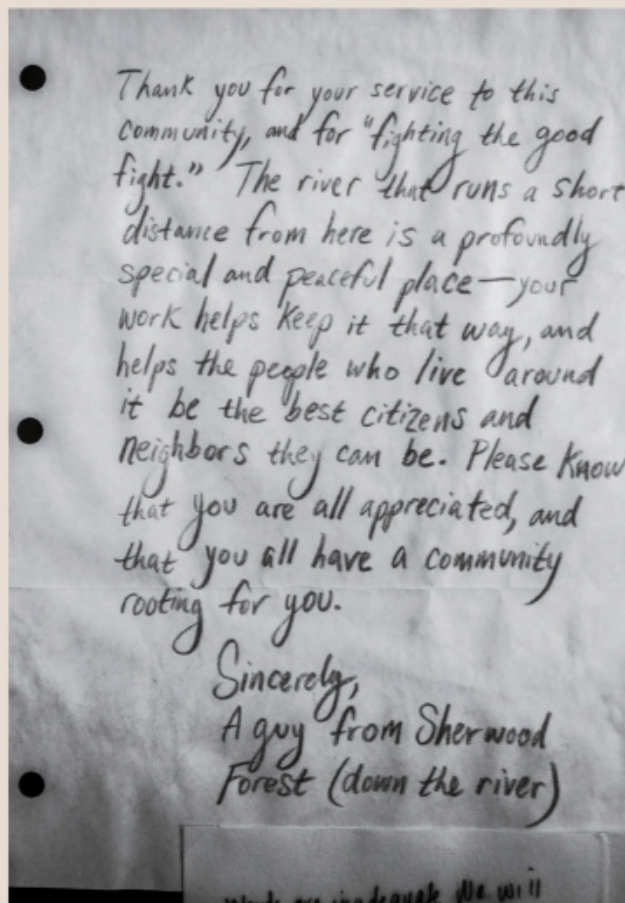 Thank you for your service to this
community, and for "fighting the good
fight." The river that runs a short
distance from here is a profoundly
special and peaceful place—your
work helps keep it that way, and
helps the people who live around
it be the best citizens and
neighbors they can be. Please know
that you are all appreciated, and
that you all have a community
rooting for you.
Sincerely,
A guy from Sherwood
Forest (down the river)
Words are inadequate. We will